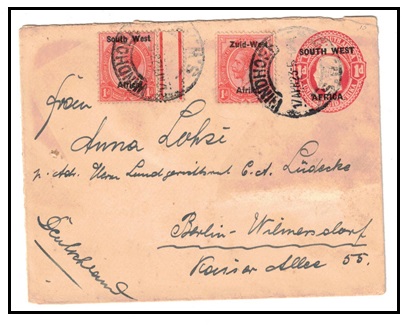 South West
Africa
Zuid-West
Afrika
SOUTH WEST
AFRICA
WINDHOEK
Fräulein
Anna Lohse
p. Adr. Herrn Landgerichtsrat C. A. Lüdecke
Berlin-Wilmersdorf
Kaiser Allee 55.
Deutschland